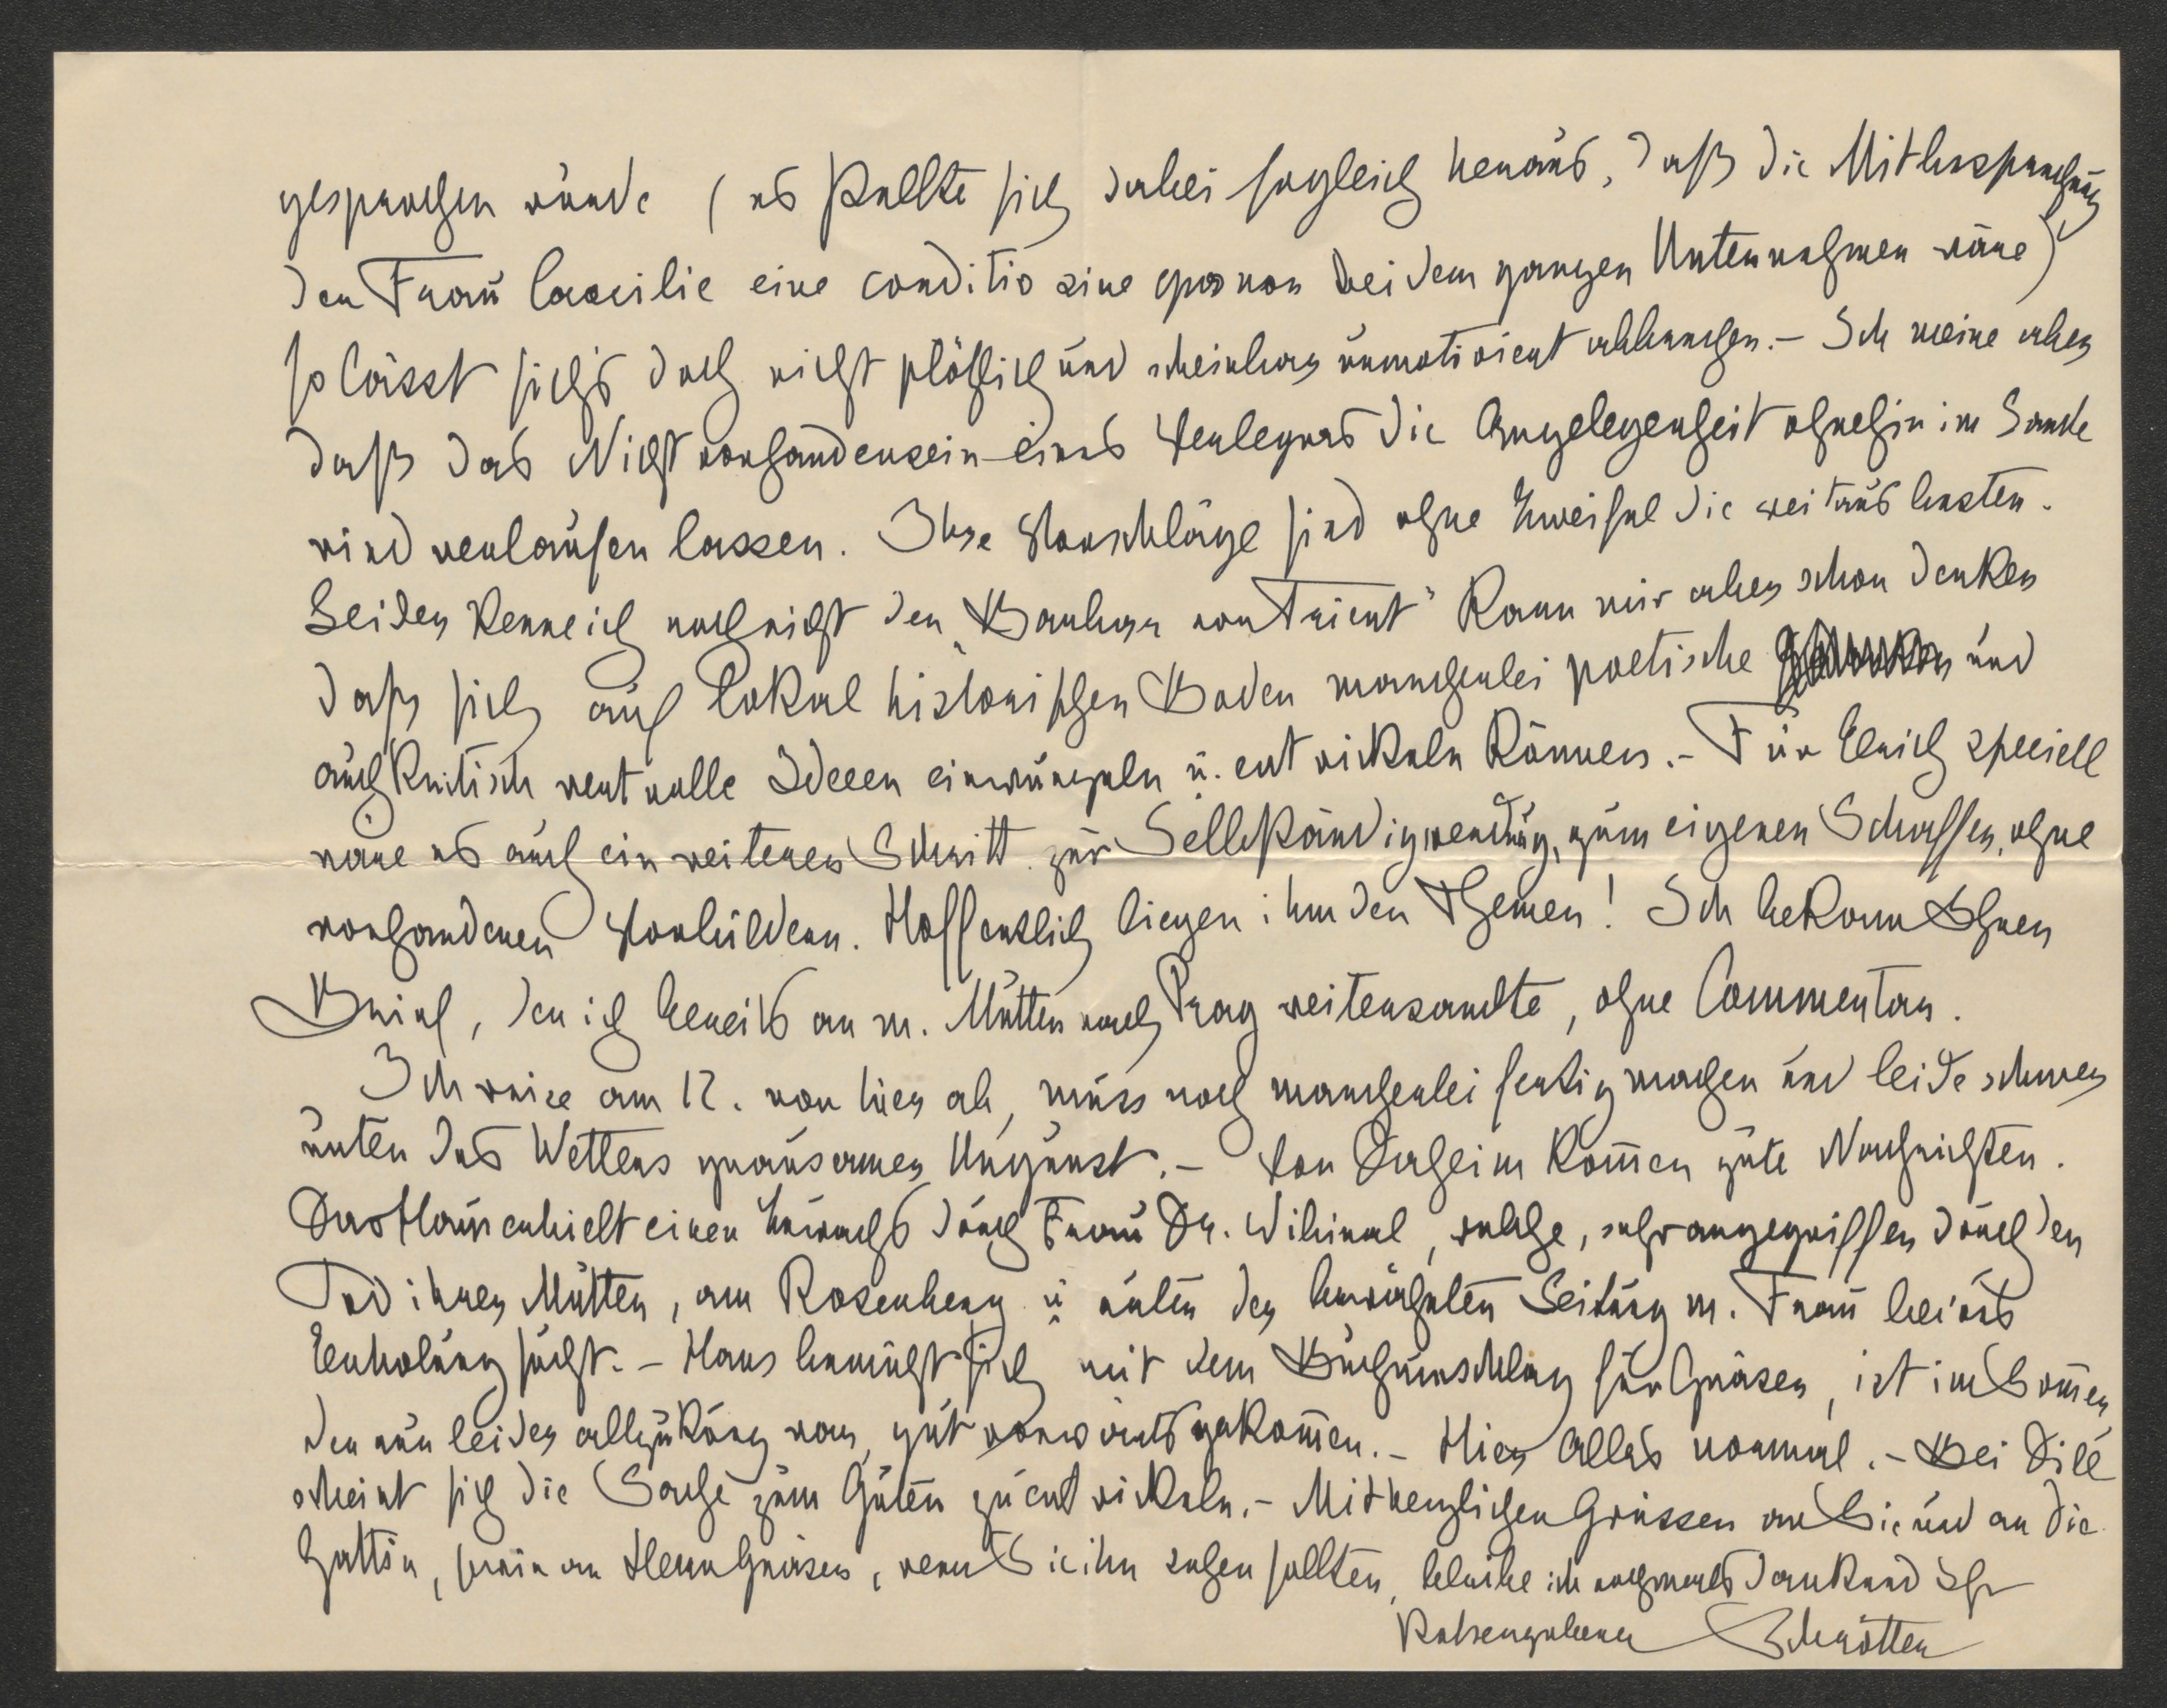 gesprochen wurde (es stellte sich dabei sogleich heraus, daß die Mitbesprechung
der Frau Caecilie eine conditio sine qua non bei dem ganzen Unternehmen wäre)
so lässt sich's doch nicht plötzlich und scheinbar unmotiviert abbrechen. – Ich meine aber
daß das Nichtvorhandensein eines Verlegers die Angelegenheit ohnehin im Sande
wird verlaufen lassen. Ihre Vorschläge sind ohne Zweifel die weitaus besten.
Leider kenne ich noch nicht den „Barbar von Trient" kann mir aber schon denken
daß sich auf lokal historischen Boden mancherlei poetische und
auch kritisch wertvolle Ideeen einwurzeln u. entwickeln können. – Für Erich speciell
wäre es auch ein weiterer Schritt zur Selbständigwerdung, zum eigenen Schaffen, ohne
vorhandenen Vorbildern. Hoffentlich liegen ihm den Themen! Ich bekam Ihren
Brief, den ich bereits an m. Mutter nach Prag weitersandte, ohne Commentar.
Ich reise am 12. von hier ab, muss noch mancherlei fertig machen und leide schwer
unter des Wetters grausamer Ungunst. – Von Daheim kom̅en gute Nachrichten.
Das Haus erhielt einen Zuwachs durch Frau Dr. Wihiral, welche, sehr angegriffen durch den
Tod ihrer Mutter, am Rosenberg u unter der bewährten Leitung m. Frau bei uns
Erholung sucht. – Hans bemüht sich mit dem Buchumschlag für Gräser, ist im Som̅er,
der nun leider allzukurz war, gut vorwärts gekom̅en. – Hier Alles normal. – Bei Dillé
scheint sich die Sache zum Guten zu entwickeln. – Mit herzlichen Grüssen an Sie und an die
Gattin, sowie an Herrn Gräser, wenn Sie ihn sehen sollten, bleibe ich nochmals dankend Ihr
Ratsergebener Schrötter